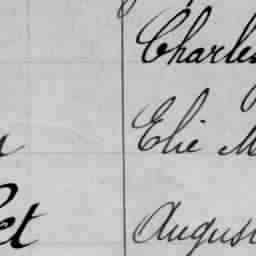 Charles
Elie M
et August